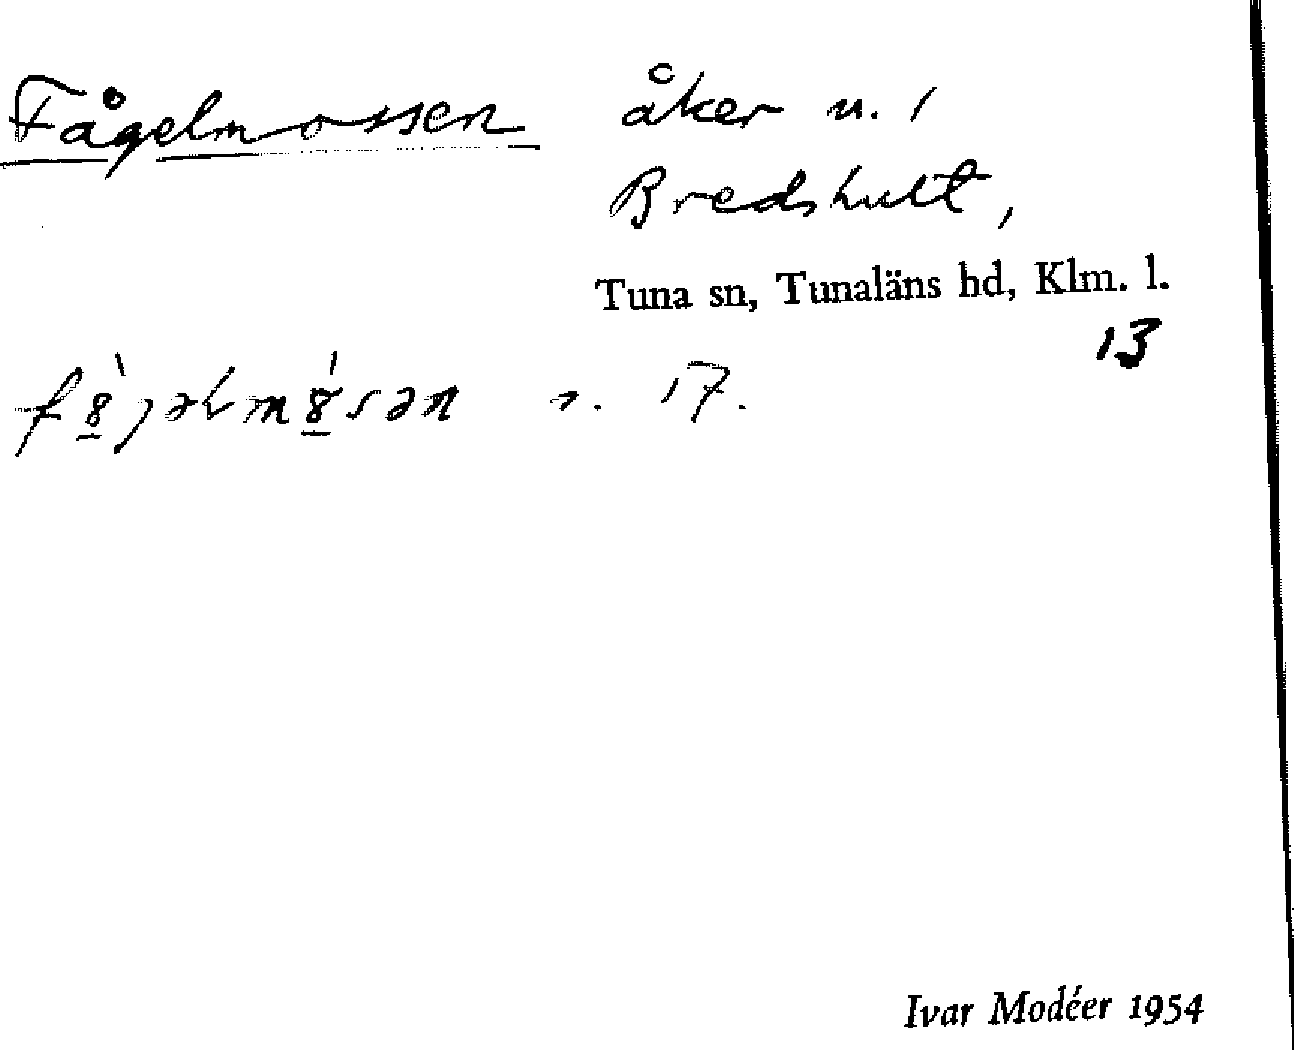 Fågelmossen åker n. 1
Bredshult,
Tuna sn, Tunaläns hd, Klm. l.
13
17.
Ivar Modéer 1954